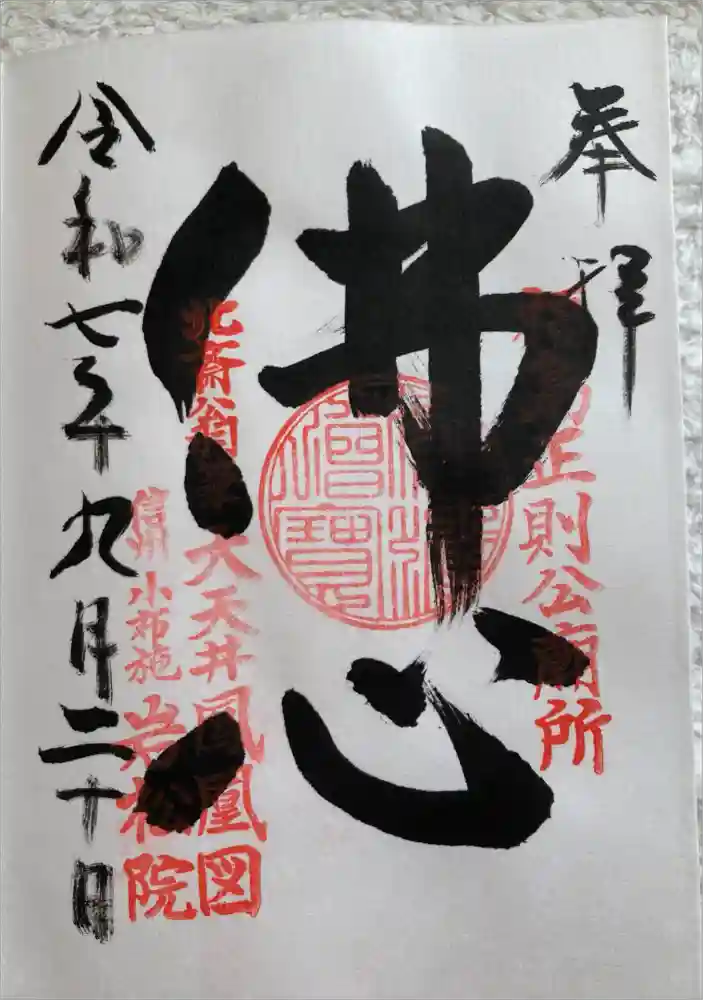 奉拝
正則公廟所
佛心
北斎翁 大天井鳳凰図
信州 小布施 岩松院
令和七年九月二十日